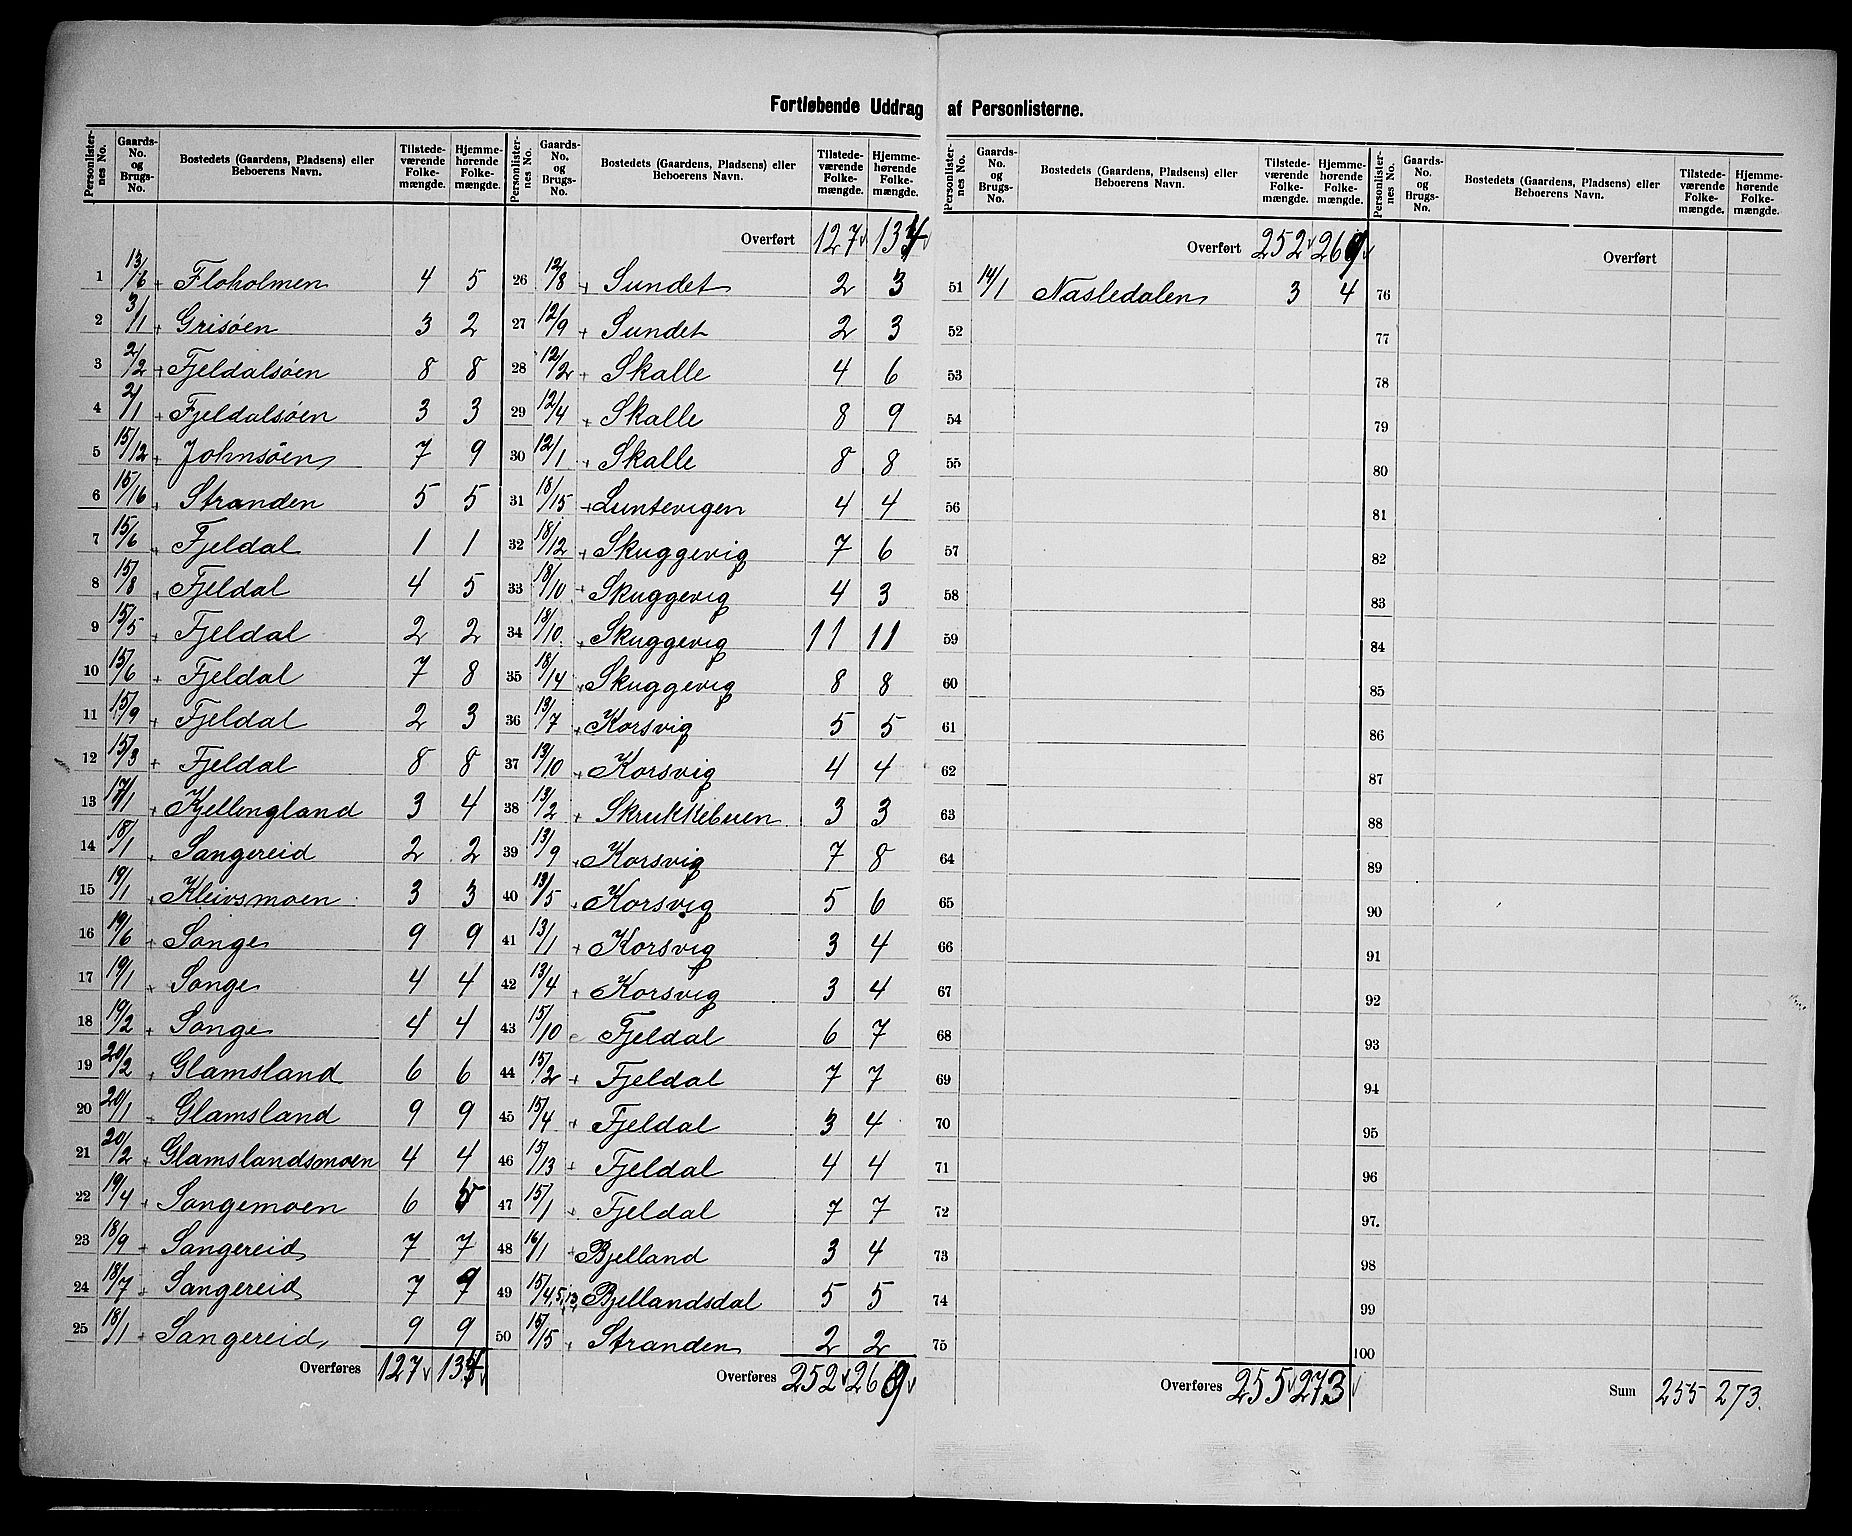 Fortløbende Uddrag af Personlisterne.
Personlisternes No. Gaards-No. og Brugs-No. Bostedets (Gaardens, Pladsens) eller Beboerens Navn. Tilstedeværende Folkemængde. Hjemmehørende Folkemængde.
1 13/16 + Floholmen 4 5
2 3/1 + Grisöen 3 2
3 2/2 + Fjeldalsöen 8 8
4 2/1 + Fjeldalsöen 3 3
5 15/12 + Johnsöen 7 9
6 15/16 + Stranden 5 5
7 15/6 + Fjeldal 1 1
8 15/8 + Fjeldal 4 5
9 15/5 + Fjeldal 2 2
10 15/6 + Fjeldal 7 8
11 15/9 + Fjeldal 2 3
12 15/3 + Fjeldal 8 8
13 17/1 + Kjellingland 3 4
14 18/1 + Sangereid 2 2
15 19/1 + Kleivsmoen 3 3
16 19/6 + Songe 9 9
17 19/1 + Songe 4 4
18 19/2 + Songe 4 4
19 20/2 + Glamsland 6 6
20 20/1 + Glamsland 9 9
21 20/2 + Glamslandsmoen 4 4
22 19/4 + Songemoen 6 5
23 18/9 + Sangereid 7 7
24 18/7 + Sangereid 7 9
25 18/1 + Sangereid 9 9
Overføres 127 134
Personlisternes No. Gaards-No. og Brugs-No. Bostedets (Gaardens, Pladsens) eller Beboerens Navn. Tilstedeværende Folkemængde. Hjemmehørende Folkemængde.
Overført 127 134
26 12/8 + Sundet 2 3
27 12/9 + Sundet 2 3
28 12/2 + Skalle 4 6
29 12/4 + Skalle 8 9
30 12/1 + Skalle 8 8
31 18/15 + Luntevigen 4 4
32 18/12 + Skuggevig 7 6
33 18/10 + Skuggevig 4 3
34 18/10 + Skuggevig 11 11
35 18/14 + Skuggevig 8 8
36 13/7 + Korsvig 5 5
37 13/10 + Korsvig 4 4
38 13/2 + Skrukkebuen 3 3
39 13/9 + Korsvig 7 8
40 13/5 + Korsvig 5 6
41 13/1 + Korsvig 3 4
42 13/4 + Korsvig 3 4
43 15/10 Fjeldal 6 7
44 15/2 + Fjeldal 7 7
45 15/4 + Fjeldal 3 4
46 15/13 + Fjeldal 4 4
47 15/1 + Fjeldal 7 7
48 16/1 + Bjelland 3 4
49 15/4,5,13 Bjellandsdal 5 5
50 15/15 + Stranden 2 2
Overføres 252 269
Personlisternes No. Gaards-No. og Brugs-No. Bostedets (Gaardens, Pladsens) eller Beboerens Navn. Tilstedeværende Folkemængde. Hjemmehørende Folkemængde.
Overført 252 269
51 14/1 Nasledalen 3 4
52
53
54
55
56
57
58
59
60
61
62
63
64
65
66
67
68
69
70
71
72
73
74
75
Overføres 255 273
Personlisternes No. Gaards-No. og Brugs-No. Bostedets (Gaardens, Pladsens) eller Beboerens Navn. Tilstedeværende Folkemængde. Hjemmehørende Folkemængde.
Overført
76
77
78
79
80
81
82
83
84
85
86
87
88
89
90
91
92
93
94
95
96
97.
98
99
100
Sum 255 273.